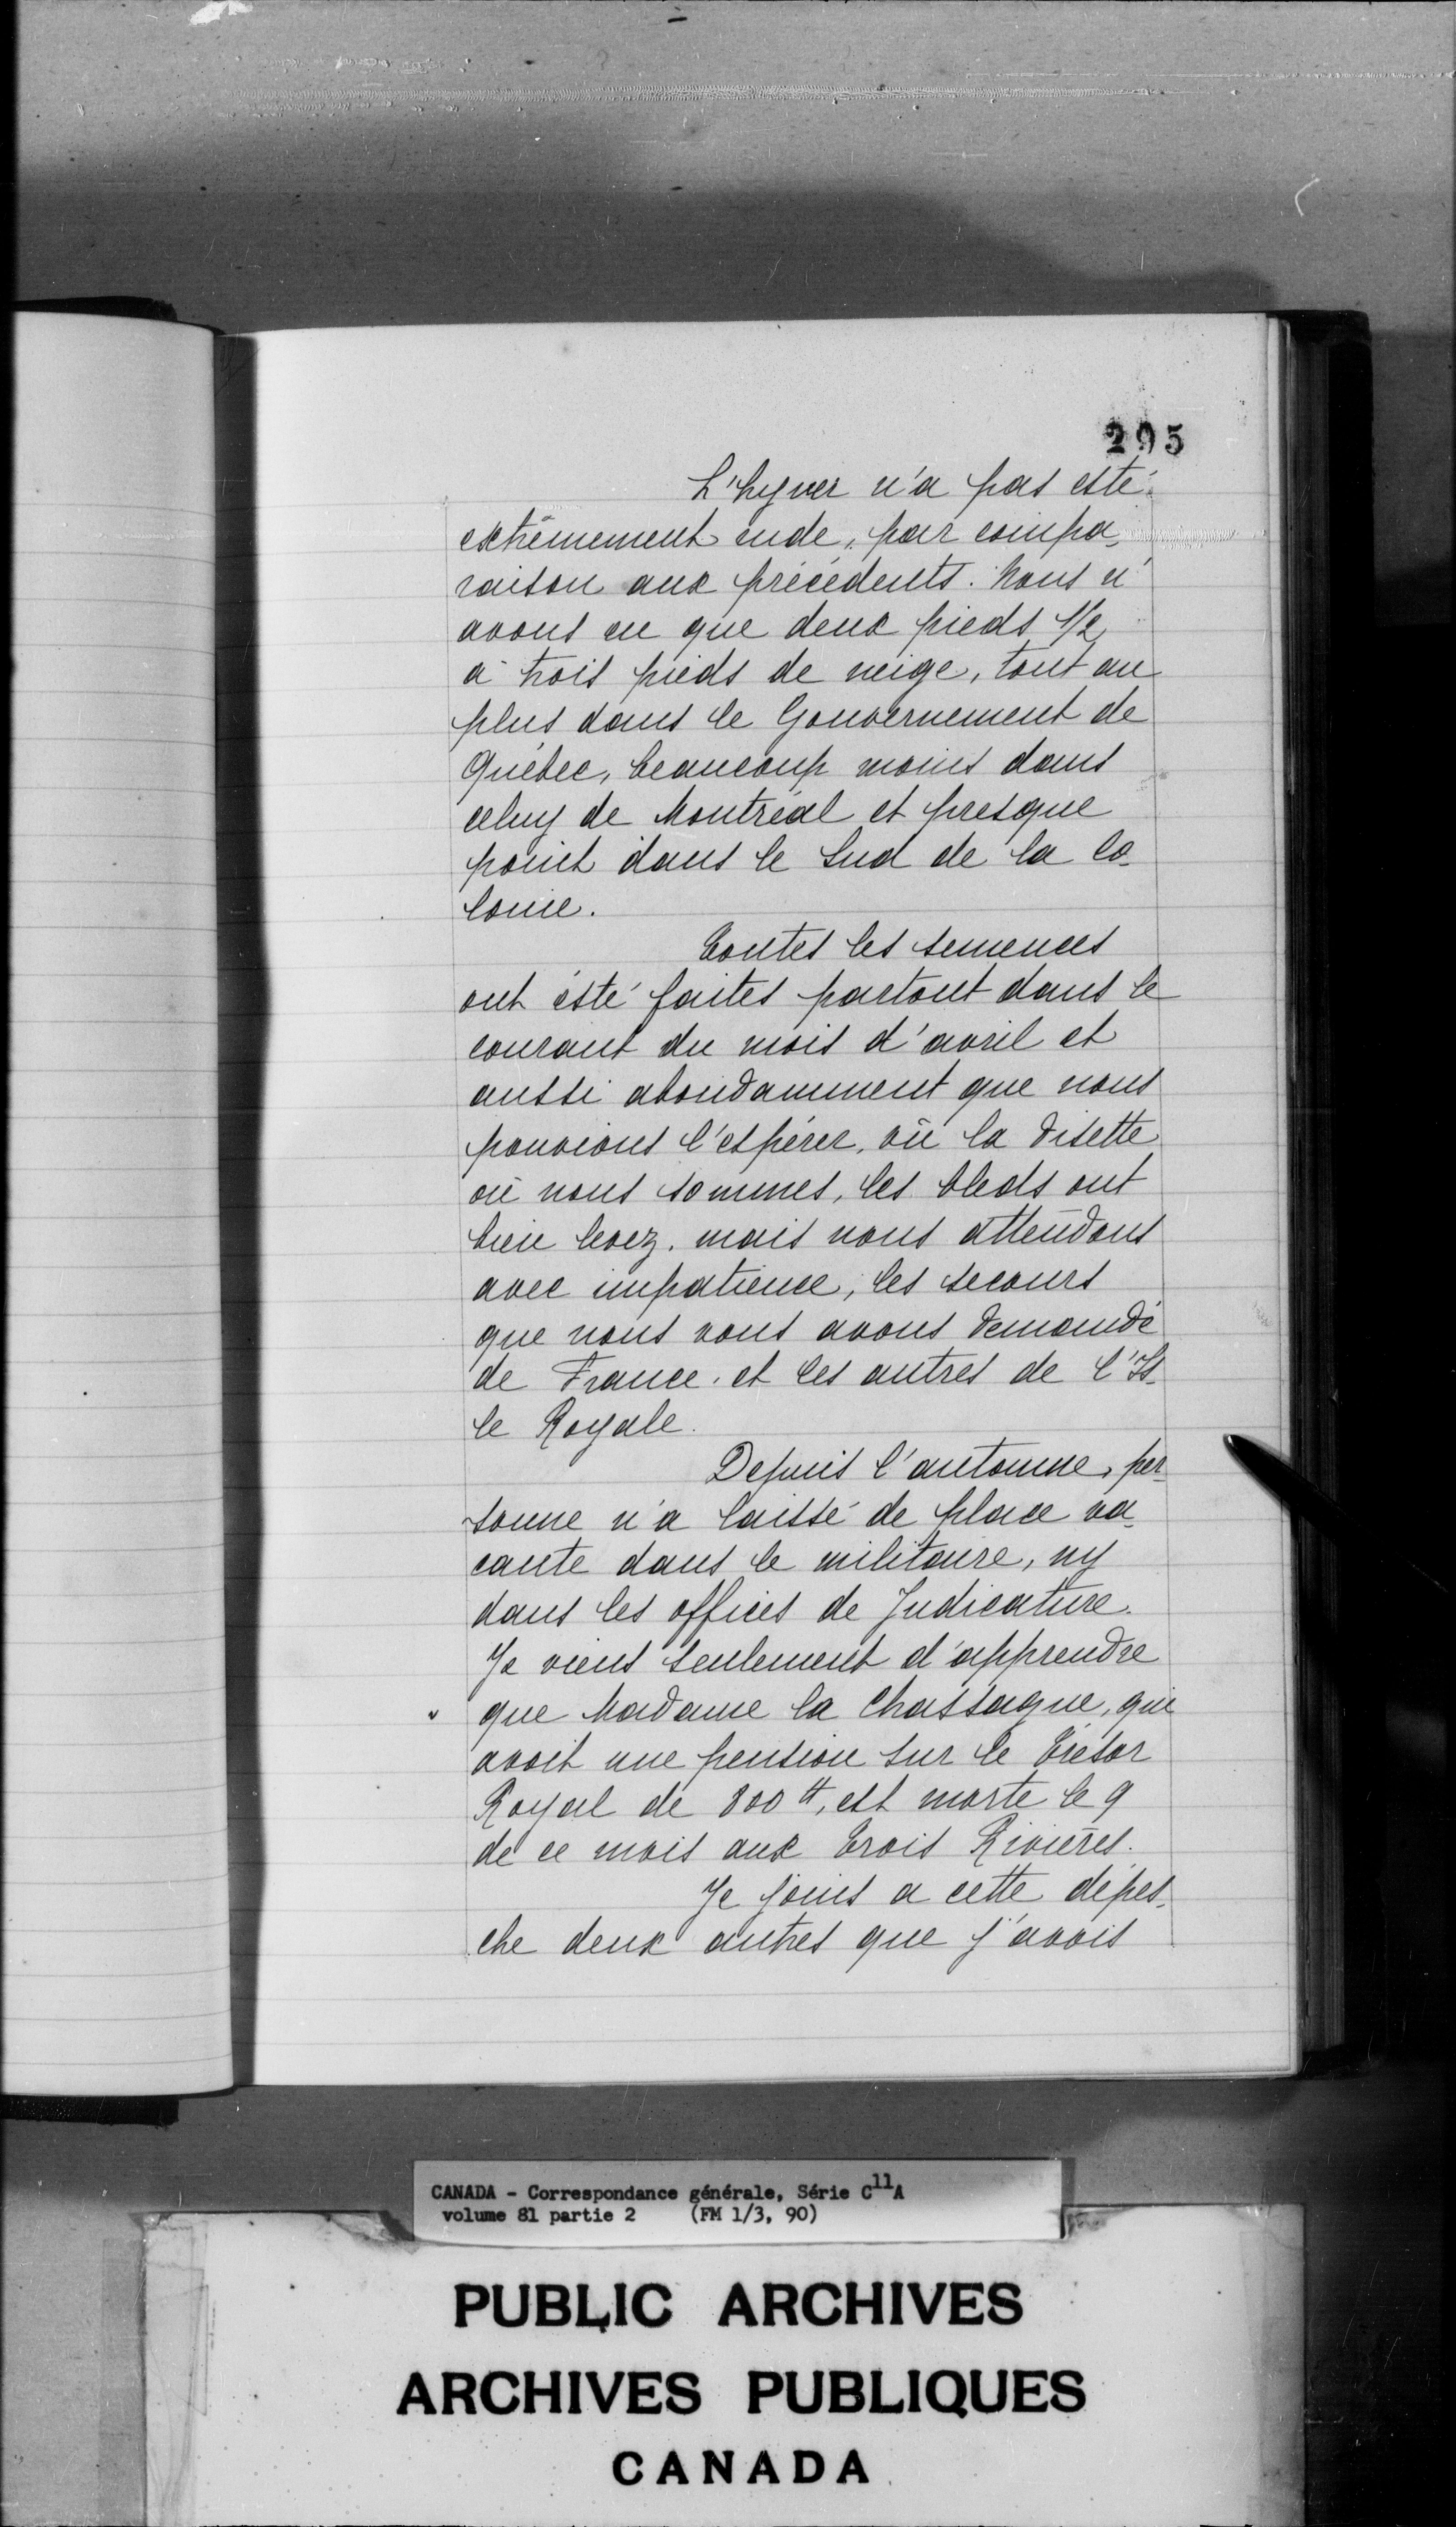 295
L'hyver n'a pas esté
extrêmement rude, par compa-
raison aux précédents. Nous n'
avons eu que deux pieds 1/2
à trois pieds de neige, tout au
plus dans le Gouvernement de
Québec, beaucoup moins dans
celuy de Montréal et presque
point dans le Sud de la Co-
lonie.
Toutes les semences
ont ésté faites partout dans le
courant du mois d'avril et
aussi abondamment que nous
pouvions l'espérer, vû la disette
où nous sommes, les bleds ont
bien levez, mais nous attendons
avec impatience, les secours
que nous vous avons demandé
de France, et les autres de l'Is-
le Royale.
Depuis l'automne, per-
sonne n'a laissé de place va-
cante dans le militaire, ny
dans les offices de Judicature.
Je viens seulement d'apprendre
que Madame la Chassagne, qui
avoit une pension sur le Trésor
Royal de 800 ₶, est morte le 9
de ce mois aux Trois Rivières.
Je joins a cette dépes-
che deux autres que j'avois
CANADA - Correspondance générale, Série C11A
volume 81 partie 2 (FM 1/3, 90)
PUBLIC ARCHIVES
ARCHIVES PUBLIQUES
CANADA